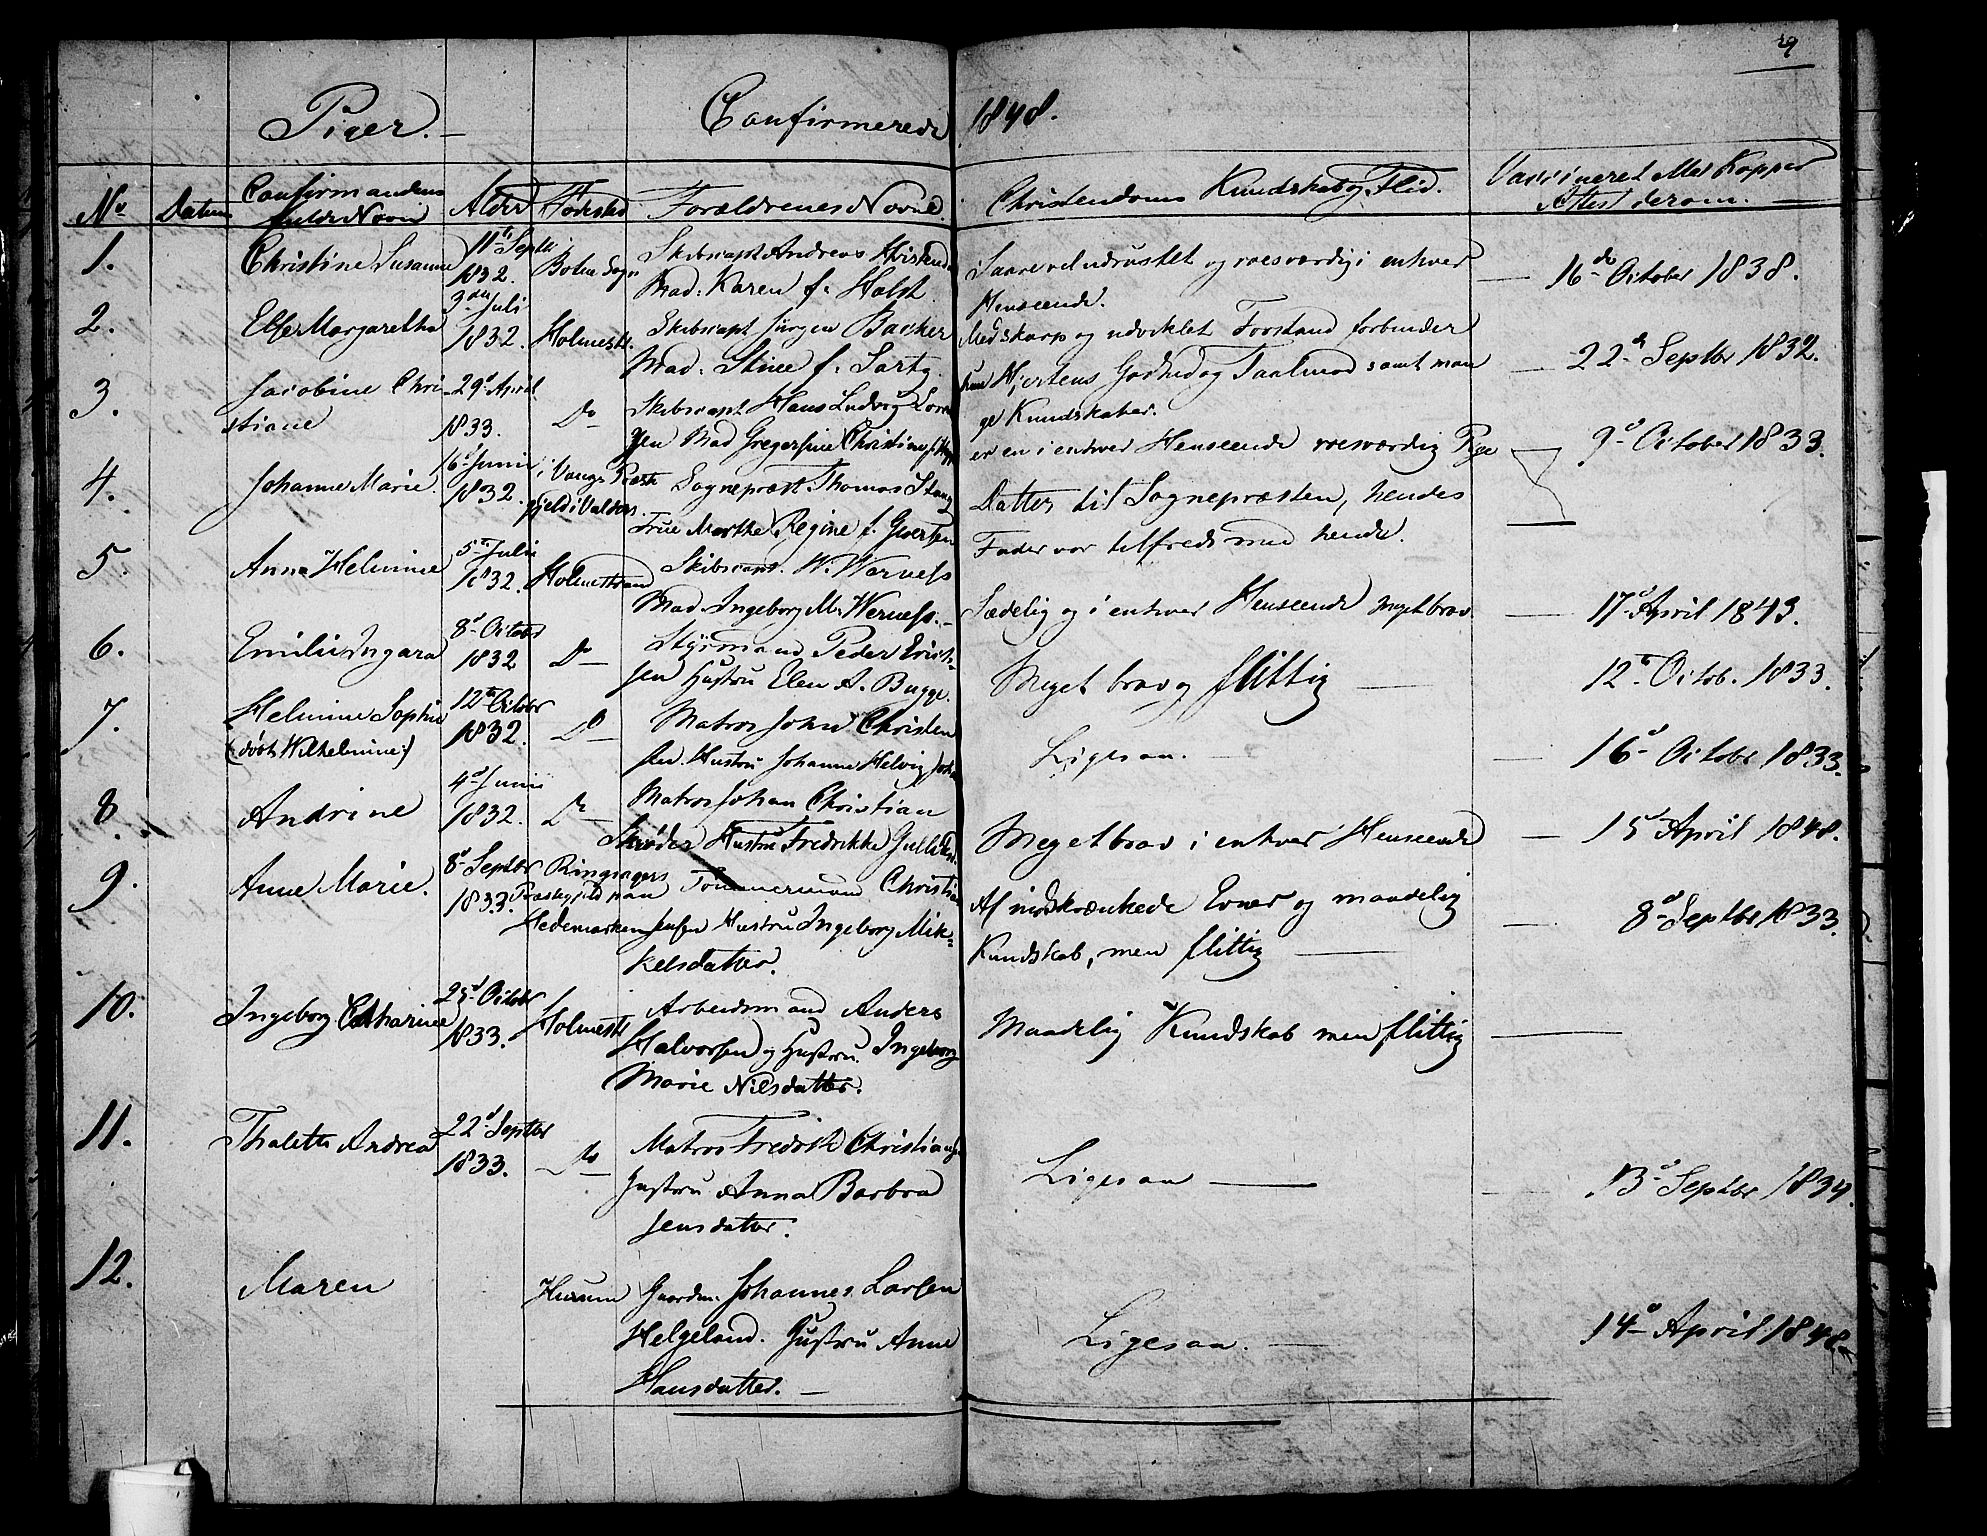 29
Piger. — Confirmerede 1848.
No Datum Confirmandens fulde Navn Alder Fødested Forældrenes Navne. Christendoms Kundskab og Flid. Vaccineret Med Kopper
Attest derom. —
1. Christine Susanne 11te Septbr 1832. Botne Sogn
Skibscapt Andreas
Mad: Karen f: Holst.
Saare vel udrustet og roesværdig i enhver
Henseende. — 16de October 1838.
2. Else Margaretha 3die Juli 1832. Holmestr.
Skibscapt Jürgen Backer
Mad: Stine f: Sartz.
Med skarp og udviklet Forstand forbinder
hun Hjertens Godhed og Taalmod samt man
ge Kundskaber. — 22d Septbr 1832.
3. Jacobine Chri
stiane 29d April 1833. Do
Skibscapt Hans Ludvig Loren
zen Mad Gregersine Christine
er en i enhver Henseende roesværdig Pige 9d October 1833.
4. Johanne Marie. 16 Junii 1832. i Vangs Præste
gjeld i Valders.
Sognepræst Thomas Stang
Frue Marthe Regine f. Sivertsen
Datter til Sognepræsten, hendes
Fader var tilfreds med hende.
5. Anna Helmine 5te Julii 1832. Holmestrand
Skibscapt. W. Werness
Mad. Ingeborg M. Werness. —
Sædelig og i enhver Henseende meget brav — 17d April 1843.
6. Emilie Ingara 8d Octobr 1832 Do
Styrmand Peder Erich-
sen Hustru Elen A. Bugge.
Meget brav og flittig — 12te Octob. 1833.
7. Helmine Sophie
(døbt Wilhelmine:) 12te Octobr 1832. Do
Matros John Christen
sen. Hustru Johanne Helvig
Ligesaa. — 16d Octobr 1833.
8. Andrine 4d Junii 1832. Do
Matros Johan Christian
Skrøder Hustru Fredrikke
Meget brav i enhver Henseende — 15d April 1848.
9. Anne Marie. 8d Septbr 1833. Ringsagers
Præstegjeld paa
Hedemarken
Tømmermand Christian
Jensen Hustru Ingeborg Mik-
kelsdatter.
Af indskrænkede Evner og maadelig
Kundskab, men flittig — 8d Septbr 1833.
10. Ingeborg Catharine 25d Octobr 1833. Holmestr
Arbeidsmand Anders
Halvorsen og Hustru Ingeborg
Marie Nilsdatter.
Maadelig Kundskab men flittig —
11. Thalette Andrea 22d Septbr 1833. Do
Matros Fredrik Christians
Hustru Anna Barbra
Jensdatter.
Ligesaa — 13d Septbr 1834.
12. Maren Hurum
Gaardm. Johannes Larsen
Helgeland. Hustru Anne
Hansdatter. —
Ligesaa. — 14d April 1848.